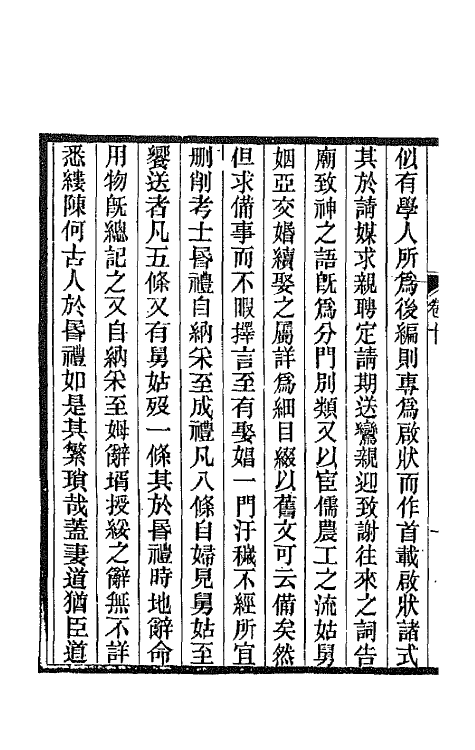 似有學人所為後編則專為啟狀而作首載啟狀諸式
其於請媒求親聘定請期送鸞親迎致謝往來之詞告
廟致神之語既為分門別類又以宦儒農工之流姑舅
姻亞交婚續娶之屬詳為細目綴以舊文可云備矣然
但求備事而不暇擇言至有娶娼一門汙穢不經所宜
刪削考士昬禮自納采至成禮凡八條自婦見舅姑至
饗送者凡五條又有舅姑歿一條其於昬禮時地辭命
用物旣總記之又自納采至姆辭壻授綏之辭無不詳
悉縷陳何古人於昬禮如是其繁瑣哉蓋妻道猶臣道
卷十
一